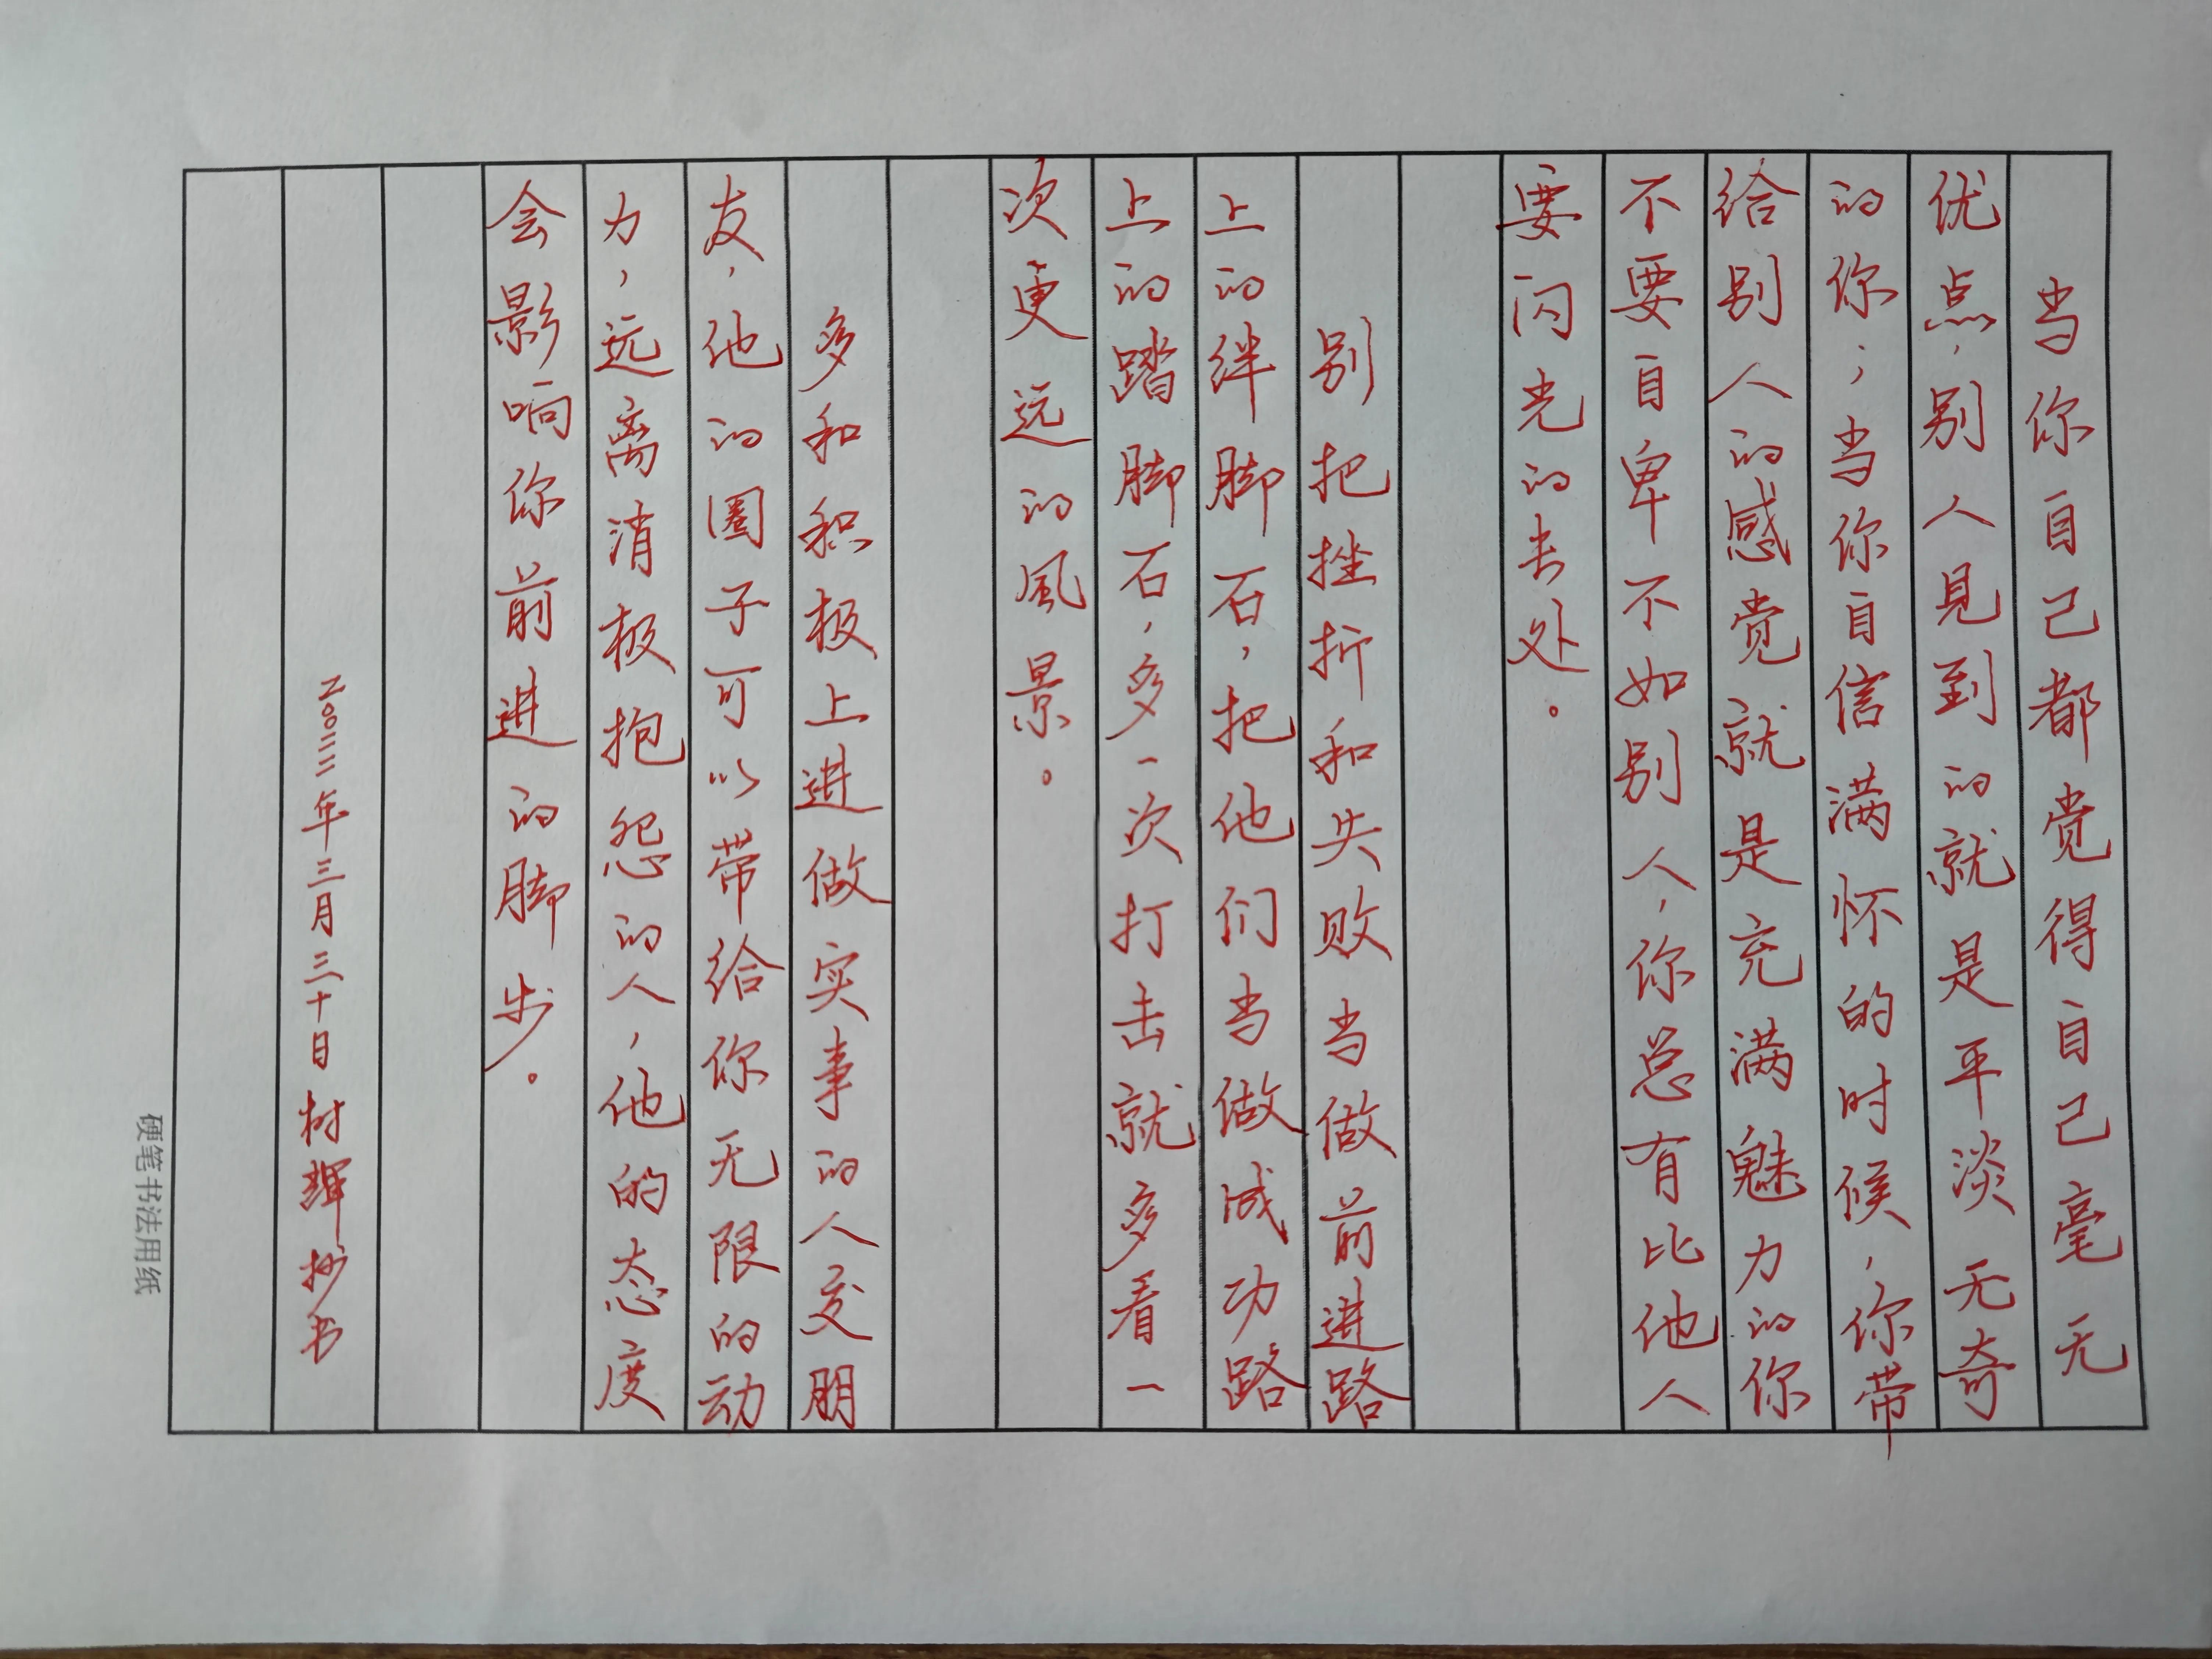 当你自己都觉得自己毫无
优点，别人见到的就是平淡无奇
的你；当你自信满怀的时候，你带
给别人的感觉就是充满魅力的你
不要自卑不如别人，你总有比他人
要闪光的去处。
别把挫折和失败当做前进路
上的绊脚石，把他们当做成功路
上的踏脚石，多一次打击就多看一
次更远的風景。
多和积极上进做实事的人交朋
友，他的圈子可以带给你无限的动
力，远离消极抱怨的人，他的态度
会影响你前进的脚步。
二〇二二年三月三十日树辉抄书
硬笔书法用纸